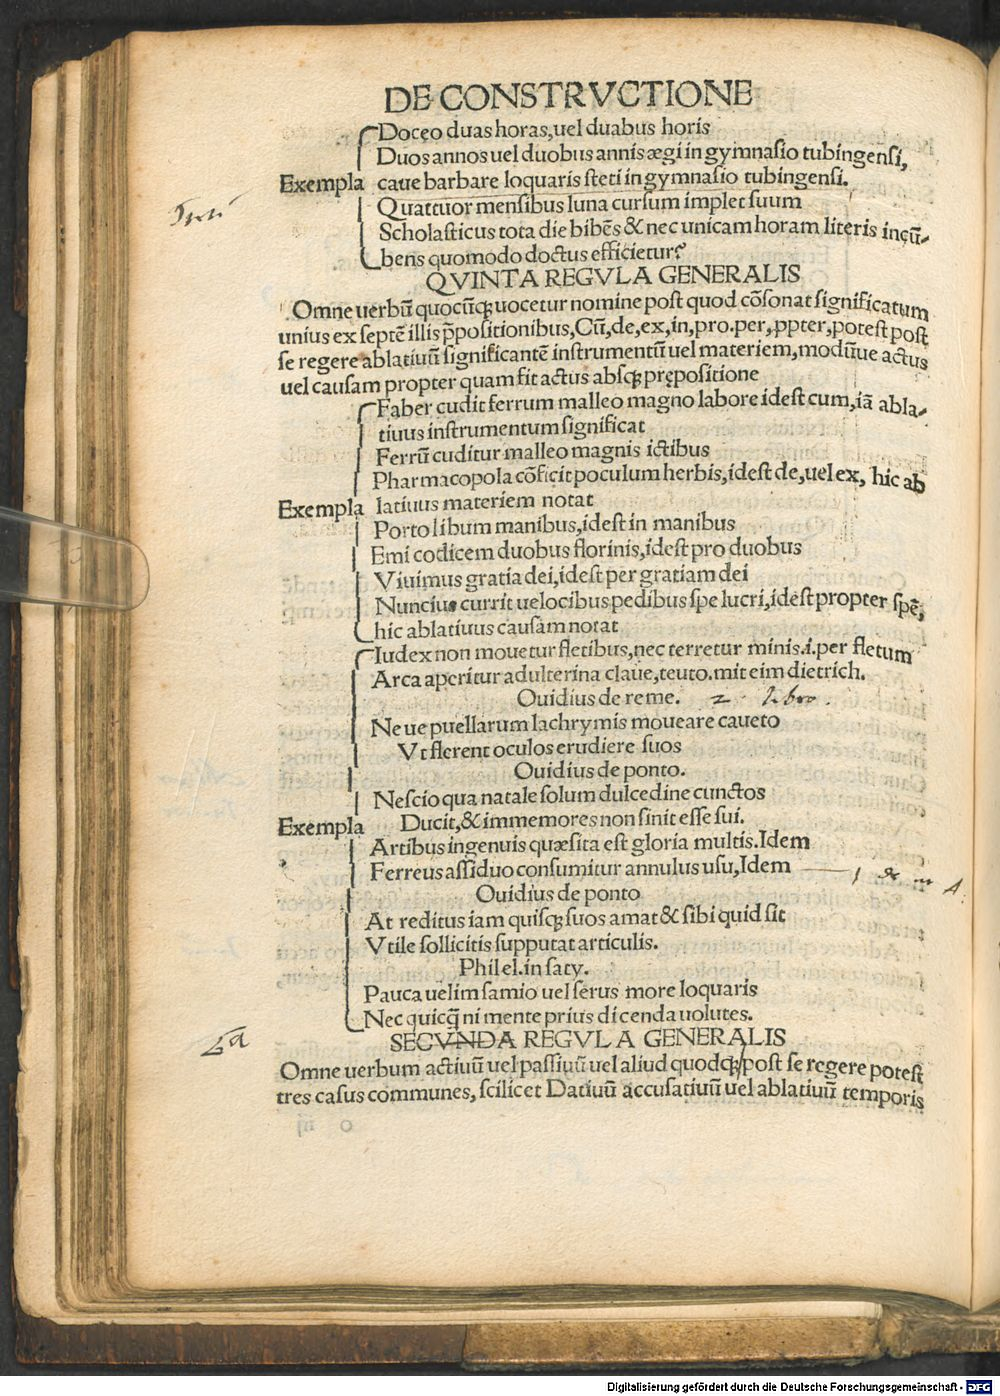 DE CONSTRVCTIONE
Doceo duas horas, uel duabus horis
Duos annos uel duobus annis ægi in gymnasio tubingensi,
Exempla caue barbare loquaris steti in gymnasio tubingensi.
Quattuor mensibus luna cursum implet suum
Scholasticus tota die bibẽs & nec unicam horam literis incũ-
bens quomodo doctus efficietur?
QVINTA REGVLA GENERALIS
Omne uerbũ quocũqꝫ uocetur nomine post quod cõsonat significatum
unius ex septẽ illis p̃positionibus, Cũ, de, ex, in, pro. per, ꝓpter, potest post
se regere ablatiuũ significantẽ instrumentũ uel materiem, modũue actus
uel causam propter quam fit actus absqꝫ prępositione
Faber cudit ferrum malleo magno labore idest cum, iã abla-
tiuus instrumentum significat
Ferrũ cuditur malleo magnis ictibus
Pharmacopola cõficit poculum herbis, idest de, uel ex, hic ab
Exempla latiuus materiem notat
Porto libum manibus, idest in manibus
Emi codicem duobus florinis, idest pro duobus
Viuimus gratia dei, idest per gratiam dei
Nuncius currit uelocibus pedibus spe lucri, idest propter spẽ,
hic ablatiuus causam notat
Iudex non mouetur fletibus, nec terretur minis .i. per fletum
Arca aperitur adulterina claue, teuto. mit eim dietrich.
Ouidius de reme. 2 libro
Neue puellarum lachrymis moueare caueto
Vt flerent oculos erudiere suos
Ouidius de ponto.
Nescio qua natale solum dulcedine cunctos
Exempla Ducit, & immemores non sinit esse sui.
Artibus ingenuis quæsita est gloria multis. Idem
Ferreus assiduo consumitur annulus usu, Idem
Ouidius de ponto
At reditus iam quisqꝫ suos amat & sibi quid sit
Vtile sollicitis supputat articulis.
Philel. in saty.
Pauca uelim samio uel serus more loquaris
Nec quicq̃ ni mente prius dicenda uolutes.
6a SECVNDA REGVLA GENERALIS
Omne uerbum actiuũ uel passiuũ uel aliud quodqꝫ post se regere potest
tres casus communes, scilicet Datiuũ accusatiuũ uel ablatiuũ temporis
Digitalisierung gefördert durch die Deutsche Forschungsgemeinschaft - DFG